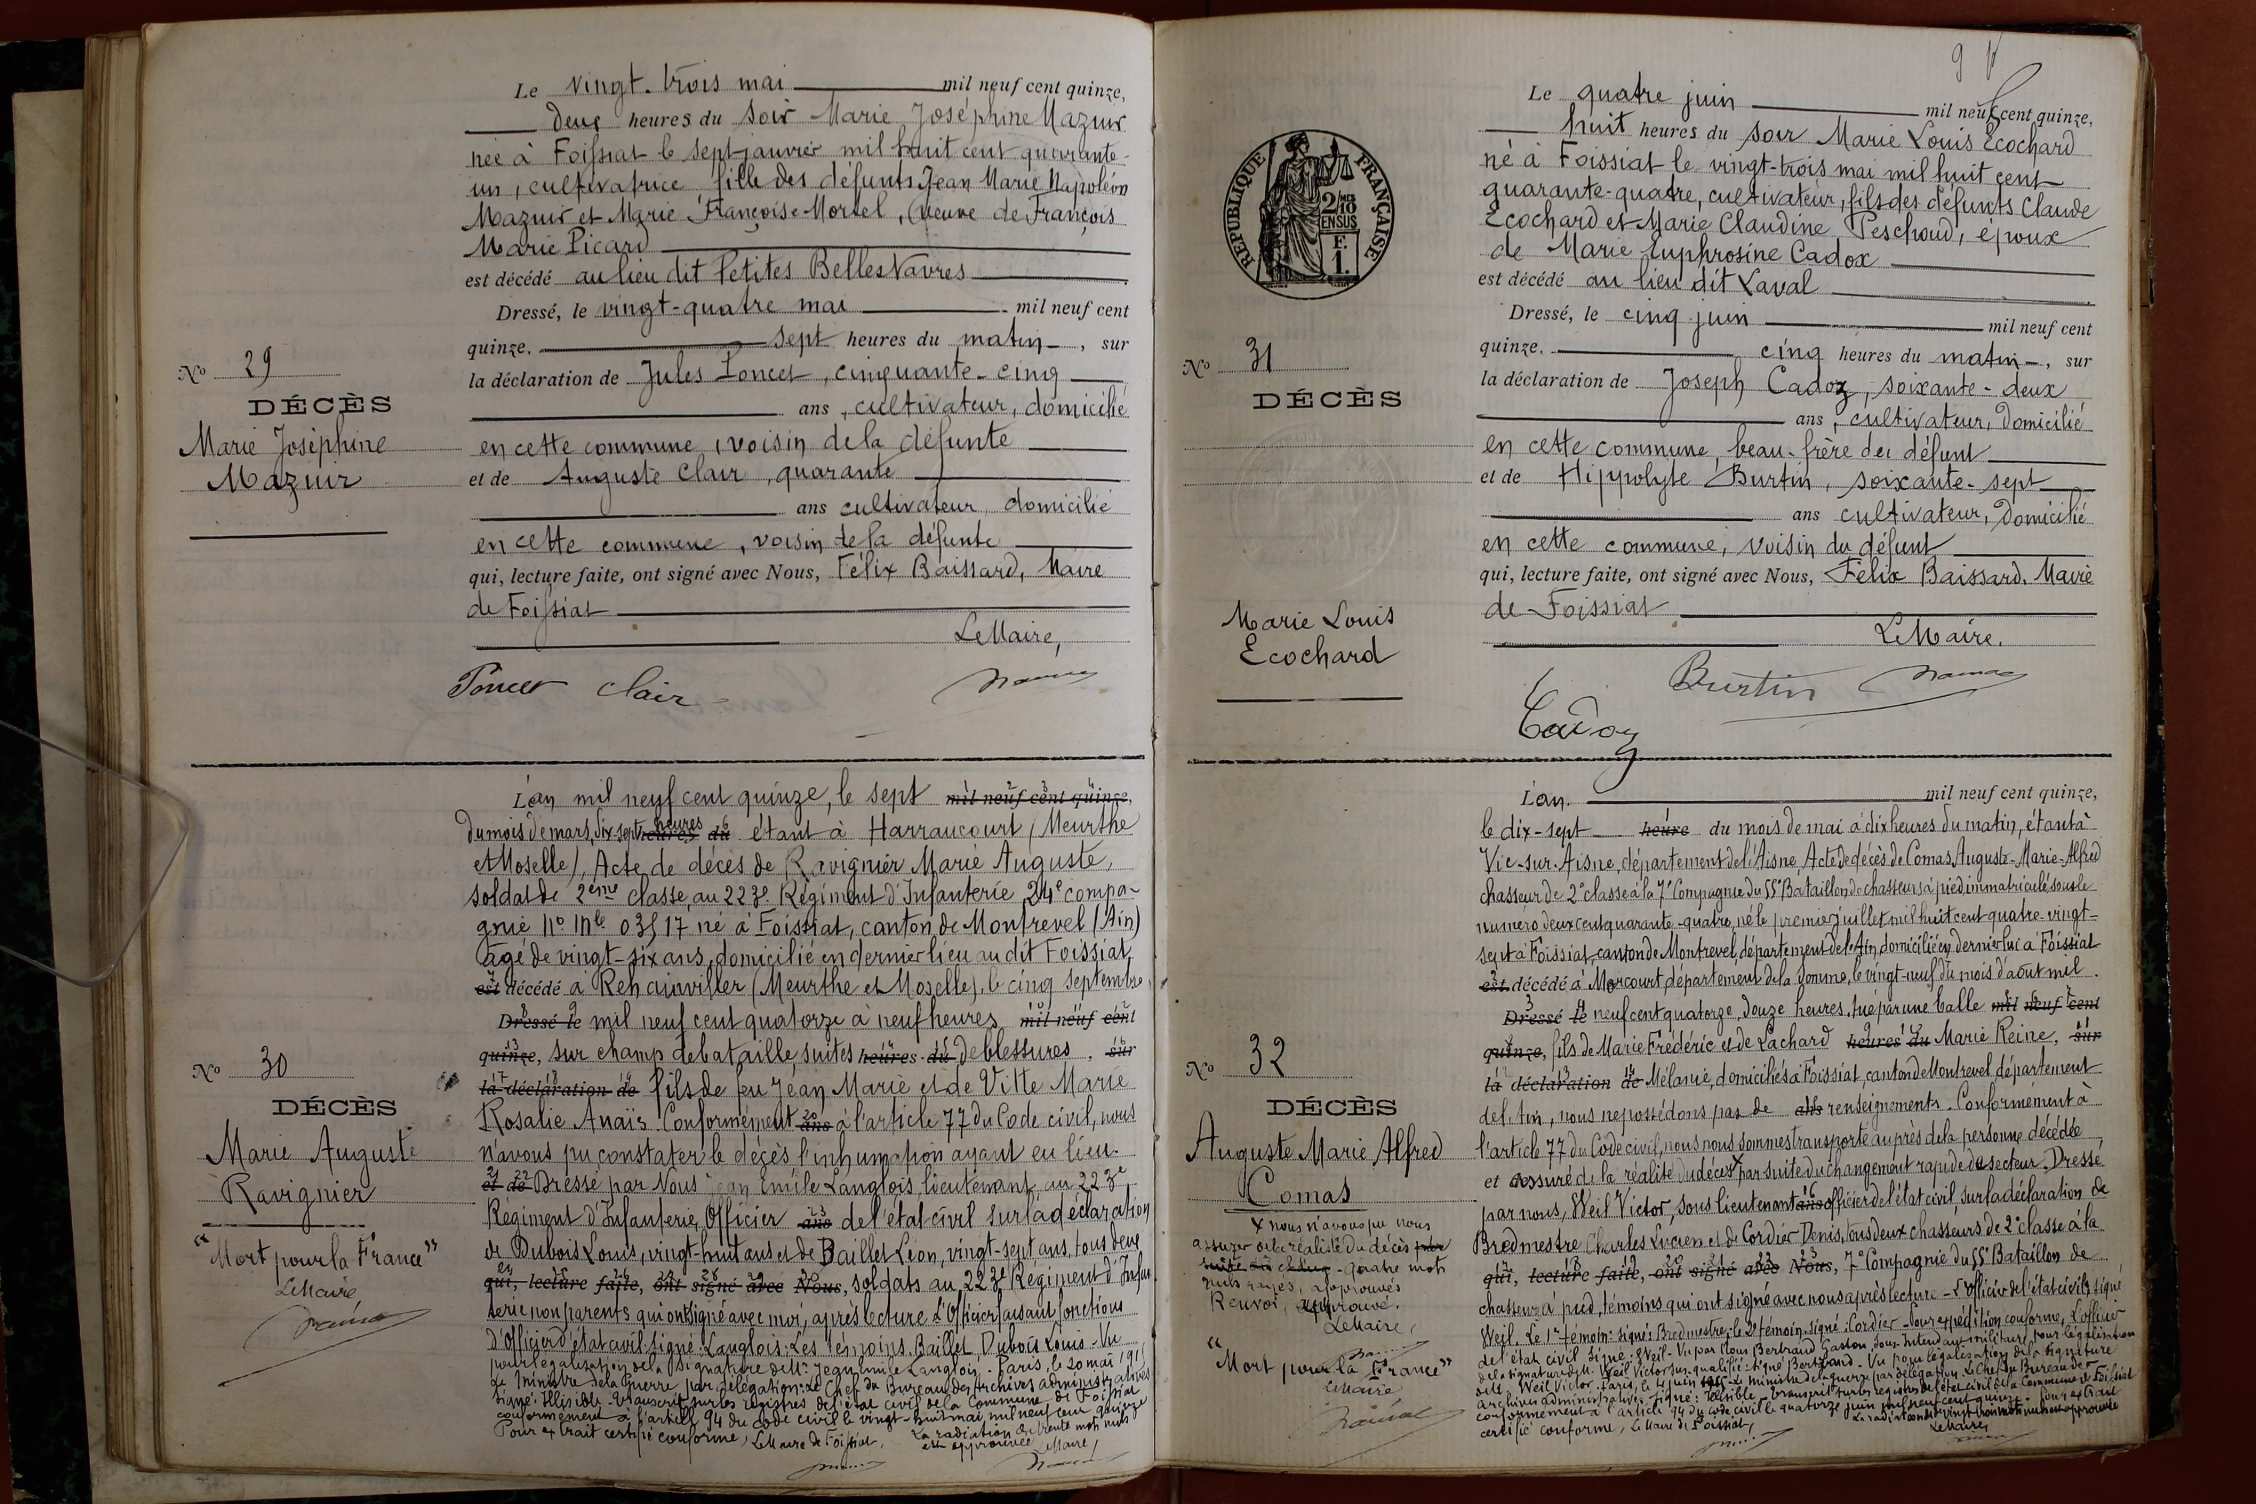 Le vingt-trois mai mil neuf cent quinze,
deux heures du soir Marie Joséphine Mazuir
née à Foissiat le sept janvier mil huit cent quarante-
un, cultivatrice fille des défunts Jean Marie Napoléon
Mazuir et Marie Françoise Morel, veuve de François
Marie Picard
est décédé au lieu dit Petites Belles Vavres
Dressé, le vingt-quatre mai mil neuf cent
quinze, sept heures du matin, sur
la déclaration de Jules Poncet, cinquante-cinq
ans, cultivateur, domicilié
en cette commune, voisin de la défunte
et de Auguste Clair, quarante
ans cultivateur, domicilié
en cette commune, voisin de la défunte
qui, lecture faite, ont signé avec Nous, Félix Baissard, Maire
de Foissiat
Le Maire,
Poncet Clair
No 29
DÉCÈS
Marie Joséphine
Mazuir
L'an mil neuf cent quinze, le sept mil neuf cent quinze,
du mois de mars, dix sept heures heures du étant à Harraucourt (Meurthe
et Moselle), Acte de décès de Ravignier Marie Auguste,
soldat de 2ème classe, au 223e Régiment d'Infanterie 24e compa-
gnie No Mle 03517 né à Foissiat, canton de Montrevel (Ain)
âgé de vingt-six ans, domicilié en dernier lieu au dit Foissiat,
est décédé à Rehainviller (Meurthe et Moselle), le cinq septembre
Dressé le mil neuf cent quatorze à neuf heures mil neuf cent
quinze, sur champ de bataille, suites heures du de blessures, sur
la déclaration de fils de feu Jean Marie et de Vitte Marie
Rosalie Anaïs. Conformément ans à l'article 77 du Code civil, nous
n'avons pu constater le décès l'inhumation ayant eu lieu.
et de Dressé par Nous Jean Emile Langlois, lieutenant, au 223e
Régiment d'Infanterie, Officier ans de l'état civil sur la déclaration
de Dubois Louis, vingt-huit ans et de Baillet Léon, vingt-sept ans, tous deux
qui, lecture faite, ont signé avec Nous, soldats au 223e Régiment d'Infan
terie non parents qui ont signé avec moi, après lecture. L'Officier faisant fonctions
d'Officier d'état civil. Signé: Langlois: Les Témoins. Baillet. Dubois Louis. Vu
pour légalisation de la signature de Mr Jean Emile Langlois. Paris, le 20 mai 1915
Le Ministre de la Guerre par délégation: Le Chef du Bureau des Archives administratives
Signé: Illisible. Transcrit sur les registres de l'état civil de la Commune de Foissiat
conformément à l'article 94 du code civil le vingt-huit mai mil neuf cent quinze
Pour extrait certifié conforme, Le Maire de Foissiat, La radiation de trente mots nuls
est approuvée Le Maire,
No 30
DÉCÈS
Marie Auguste
Ravignier
"Mort pour la France"
Le Maire
9
RÉPUBLIQUE FRANÇAISE
2/10
EN SUS
F.
1.
Le quatre juin mil neuf cent quinze,
huit heures du soir Marie Louis Ecochard
né à Foissiat le vingt-trois mai mil huit cent
quarante-quatre, cultivateur, fils des défunts Claude
Ecochard et Marie Claudine Peschoud, époux
de Marie Euphrosine Cadox
est décédé au lieu dit Laval
Dressé, le cinq juin mil neuf cent
quinze, cinq heures du matin, sur
la déclaration de Joseph Cadoz, soixante-deux
ans, cultivateur, domicilié
en cette commune, beau-frère du défunt
et de Hippolyte Burtin, soixante-sept
ans cultivateur, domicilié
en cette commune, voisin du défunt
qui, lecture faite, ont signé avec Nous, Félix Baissard, Maire
de Foissiat
Le Maire.
Burtin
Cadoz
No 31
DÉCÈS
Marie Louis
Ecochard
L'an mil neuf cent quinze,
le dix-sept heure du mois de mai à dix heures du matin, étant à
Vic-sur-Aisne, département de l'Aisne, Acte de décès de Comas, Auguste-Marie-Alfred
chasseur de 2e classe à la 7e Compagnie du 55e Bataillon de chasseurs à pied immatriculé sous le
numéro deux cent quarante-quatre, né le premier juillet mil huit cent quatre-vingt-
sept à Foissiat, canton de Montrevel, département de l'Ain, domicilié en dernier lieu à Foissiat
est décédé à Morcourt, département de la Somme, le vingt-neuf du mois d'août mil
Dressé le neuf cent quatorze, douze heures, tué par une balle mil neuf cent
quinze, fils de Marie Frédéric et de Lachard heures du Marie Reine, sur
la déclaration de Mélanie, domiciliés à Foissiat, canton de Montrevel, département
de l'Ain, nous ne possédons pas de ans renseignements. Conformément à
l'article 77 du Code civil, nous nous sommes transporté auprès de la personne décédée
et assuré de la réalité du décès x par suite du changement rapide de secteur. Dressé
par nous, Weil Victor, sous lieutenant ans officier de l'état civil, sur la déclaration de
Bredmestre Charles Lucien et de Cordier Denis, tous deux chasseurs de 2e classe à la
qui, lecture faite, ont signé avec Nous, 7e Compagnie du 55e Bataillon de
chasseurs à pied, témoins qui ont signé avec nous après lecture - L'Officier de l'état civil signé
Weil. Le 1er témoin: signé: Bredmestre; le 2e témoin, signé: Cordier. Pour expédition conforme, L'officier
de l'état civil signé: Weil. Vu par Nous Bertrand Gaston, Sous-Intendant militaire, pour légalisation
de la signature de M. Weil Victor sus-qualifié: signé Bertrand. Vu pour légalisation de la signature
de M. Weil Victor. Paris, le 4 juin 1915. Le Ministre de la guerre par délégation Le Chef du Bureau des
archives administratives signé: Illisible. Transcrit sur les registres de l'état civil de la Commune de Foissiat
conformément à l'article 94 du code civil le quatorze juin mil neuf cent quinze. Pour extrait
certifié conforme, Le Maire de Foissiat,
Le Maire,
No 32
DÉCÈS
Auguste Marie Alfred
Comas
x nous n'avons pu nous
assurer de la réalité du décès
quatre mots
nuls rayés, approuvés
Renvoi, approuvé.
Le Maire,
"Mort pour la France"
Le Maire